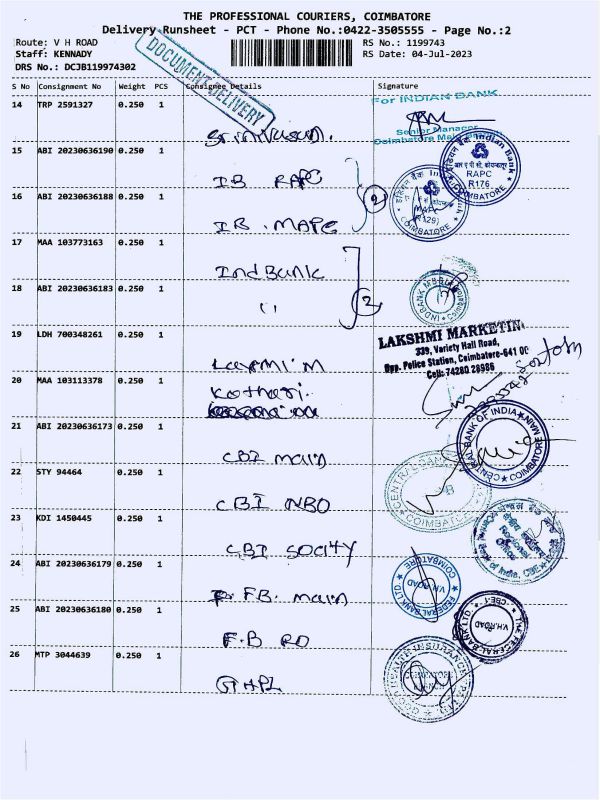 THE PROFESSIONAL COURIERS, COIMBATORE
Delivery Runsheet - PCT - Phone No.:0422-3505555 - Page No.:2
Route: V H ROAD
RS No.: 1199743
Staff: KENNADY
RS Date: 04-Jul-2023
DRS No.: DCJB119974302
DOCUMENT DELIVERY
S No Consignment No Weight PCS Consignee Details Signature
For INDIAN BANK
14 TRP 2591327 0.250 1
Senior Manager
Coimbatore Main
15 ABI 20230636190 0.250 1
IB RAPC
Indian Bank
RAPC
R176
COIMBATORE
16 ABI 20230636188 0.250 1
IB . MAPC
2
MAPC
COIMBATORE
17 MAA 103773163 0.250 1
Ind Bank
18 ABI 20230636183 0.250 1
"
2
19 LDH 700348261 0.250 1
Laxmi M
LAKSHMI MARKETIN
339, Variety Hall Road,
Opp. Police Station, Coimbatore-641 00
Cell: 74280 28986
20 MAA 103113378 0.250 1
Kothari.
21 ABI 20230636173 0.250 1
CBI main
CENTRAL BANK OF INDIA
COIMBATORE MAIN
22 STY 94464 0.250 1
CBI NBO
COIMBATORE
23 KDI 1450445 0.250 1
CBI Socity
Regional Office
24 ABI 20230636179 0.250 1
F.B. main
COIMBATORE
V.H.ROAD
FEDERAL BANK LTD
25 ABI 20230636180 0.250 1
F.B RO
THE FEDERAL BANK LTD.
V.H.ROAD
CBE-1
26 MTP 3044639 0.250 1
COIMBATORE
BRANCH